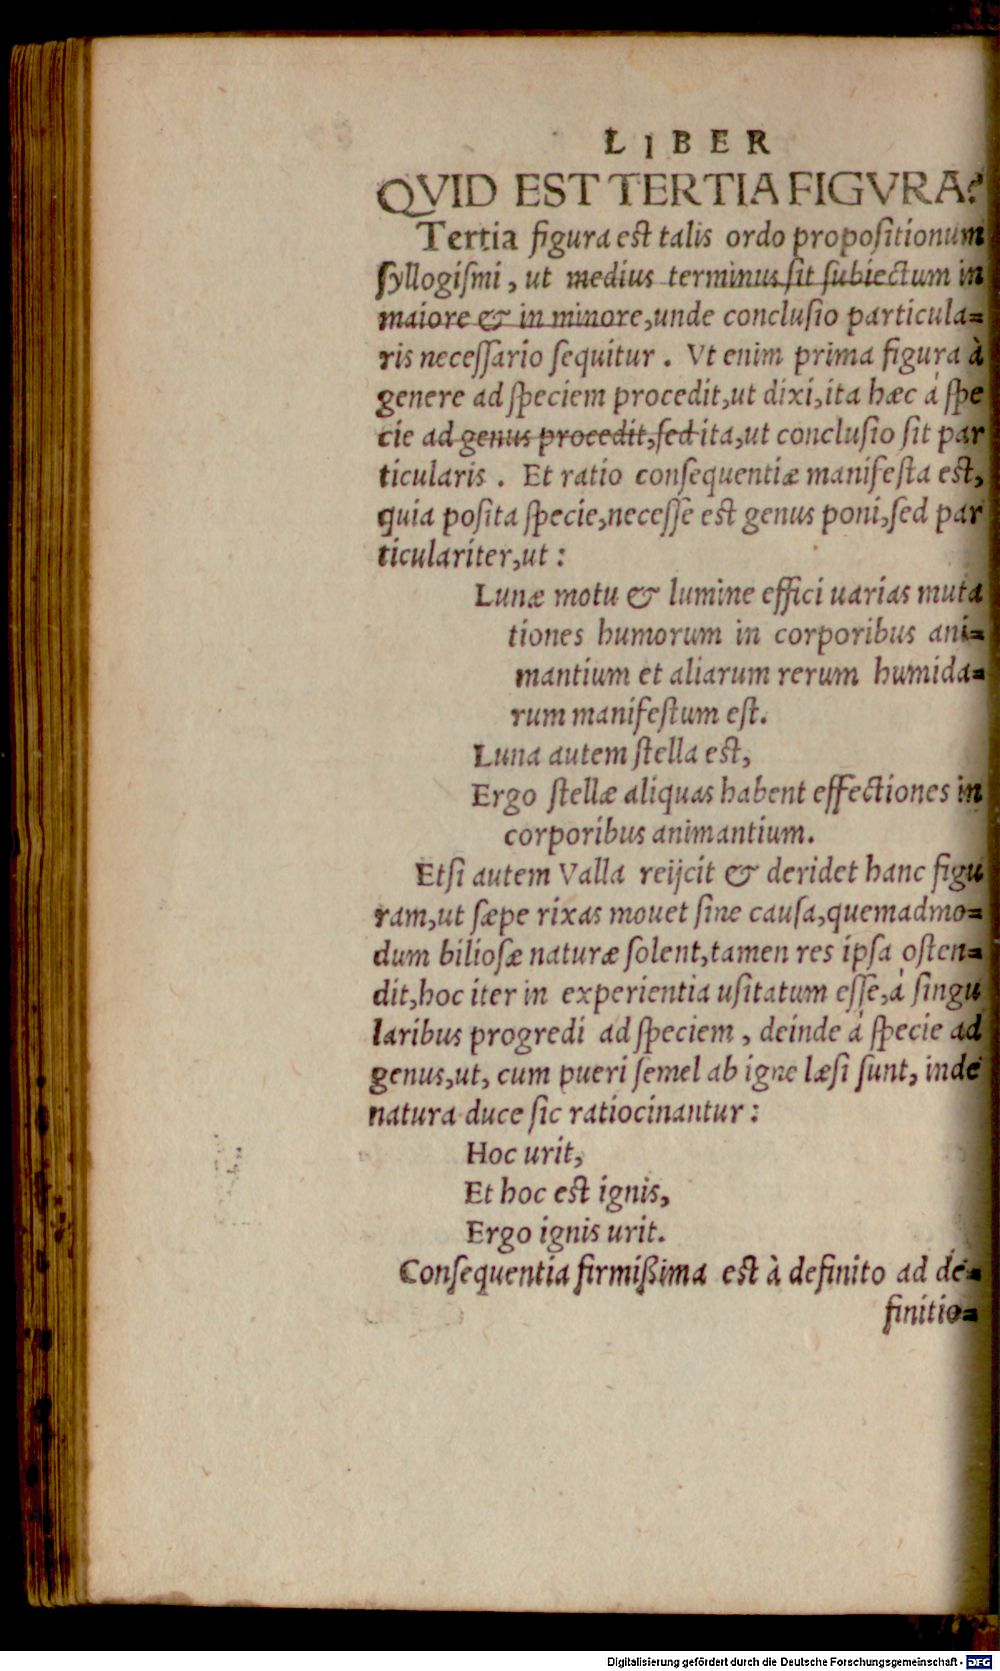 LIBER
QVID EST TERTIA FIGVRA?
Tertia figura est talis ordo propoſitionum
ſyllogiſmi, ut medius terminus ſit ſubiectum in
maiore & in minore, unde concluſio particula=
ris neceſſario ſequitur. Vt enim prima figura à
genere ad ſpeciem procedit, ut dixi, ita hæc à ſpe
cie ad genus procedit, ſed ita, ut concluſio ſit par
ticularis. Et ratio conſequentiæ manifeſta eſt,
quia poſita ſpecie, neceſſe eſt genus poni, ſed par
ticulariter, ut:
Lunæ motu & lumine effici uarias muta
tiones humorum in corporibus ani=
mantium et aliarum rerum humida=
rum manifeſtum eſt.
Luna autem ſtella eſt,
Ergo ſtellæ aliquas habent effectiones in
corporibus animantium.
Etſi autem Valla reijcit & deridet hanc figu
ram, ut ſæpe rixas mouet ſine cauſa, quemadmo=
dum bilioſæ naturæ ſolent, tamen res ipſa oſten=
dit, hoc iter in experientia uſitatum eſſe, à ſingu
laribus progredi ad ſpeciem, deinde à ſpecie ad
genus, ut, cum pueri ſemel ab igne læſi ſunt, inde
natura duce ſic ratiocinantur:
Hoc urit,
Et hoc eſt ignis,
Ergo ignis urit.
Conſequentia firmißima eſt à definito ad de=
finitio=
Digitalisierung gefördert durch die Deutsche Forschungsgemeinschaft - DFG